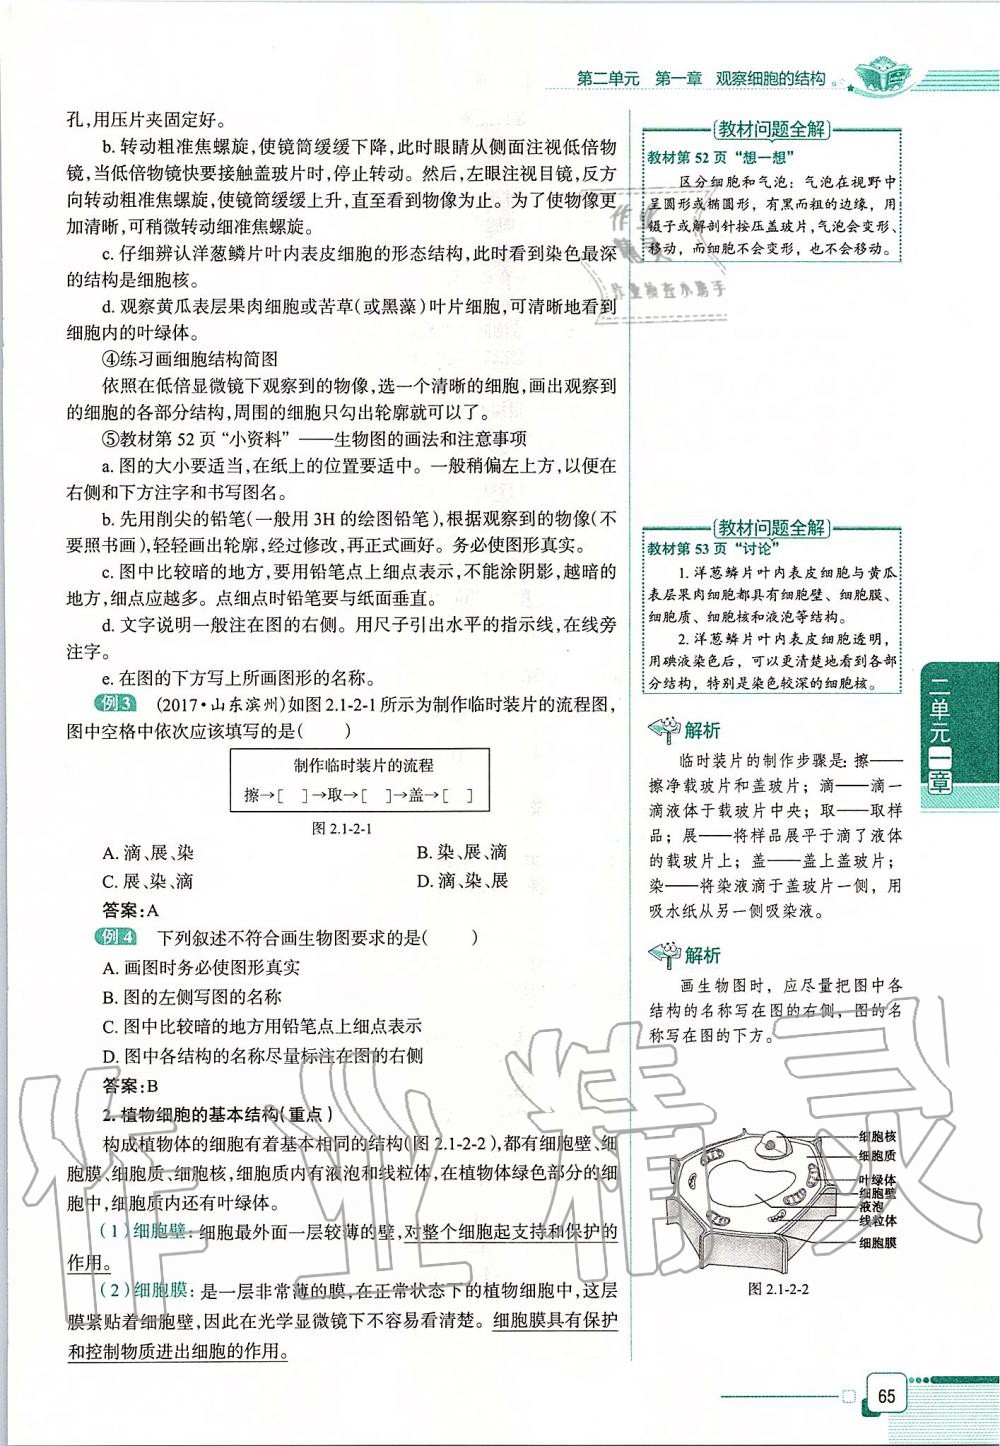 第二单元 第一章 观察细胞的结构
孔,用压片夹固定好。
b. 转动粗准焦螺旋,使镜筒缓缓下降,此时眼睛从侧面注视低倍物
镜,当低倍物镜快要接触盖玻片时,停止转动。然后,左眼注视目镜,反方
向转动粗准焦螺旋,使镜筒缓缓上升,直至看到物像为止。为了使物像更
加清晰,可稍微转动细准焦螺旋。
c. 仔细辨认洋葱鳞片叶内表皮细胞的形态结构,此时看到染色最深
的结构是细胞核。
d. 观察黄瓜表层果肉细胞或苦草(或黑藻)叶片细胞,可清晰地看到
细胞内的叶绿体。
④练习画细胞结构简图
依照在低倍显微镜下观察到的物像,选一个清晰的细胞,画出观察到
的细胞的各部分结构,周围的细胞只勾出轮廓就可以了。
⑤教材第 52 页“小资料”——生物图的画法和注意事项
a. 图的大小要适当,在纸上的位置要适中。一般稍偏左上方,以便在
右侧和下方注字和书写图名。
b. 先用削尖的铅笔(一般用 3H 的绘图铅笔),根据观察到的物像(不
要照书画),轻轻画出轮廓,经过修改,再正式画好。务必使图形真实。
c. 图中比较暗的地方,要用铅笔点上细点表示,不能涂阴影,越暗的
地方,细点应越多。点细点时铅笔要与纸面垂直。
d. 文字说明一般注在图的右侧。用尺子引出水平的指示线,在线旁
注字。
e. 在图的下方写上所画图形的名称。
例3 (2017·山东滨州)如图 2.1-2-1 所示为制作临时装片的流程图,
图中空格中依次应该填写的是( )
制作临时装片的流程
擦→[ ]→取→[ ]→盖→[ ]
图 2.1-2-1
A. 滴、展、染 B. 染、展、滴
C. 展、染、滴 D. 滴、染、展
答案:A
例4 下列叙述不符合画生物图要求的是( )
A. 画图时务必使图形真实
B. 图的左侧写图的名称
C. 图中比较暗的地方用铅笔点上细点表示
D. 图中各结构的名称尽量标注在图的右侧
答案:B
2. 植物细胞的基本结构(重点)
构成植物体的细胞有着基本相同的结构(图 2.1-2-2),都有细胞壁、细
胞膜、细胞质、细胞核,细胞质内有液泡和线粒体,在植物体绿色部分的细
胞中,细胞质内还有叶绿体。
(1)细胞壁:细胞最外面一层较薄的壁,对整个细胞起支持和保护的
作用。
(2)细胞膜:是一层非常薄的膜,在正常状态下的植物细胞中,这层
膜紧贴着细胞壁,因此在光学显微镜下不容易看清楚。细胞膜具有保护
和控制物质进出细胞的作用。
教材问题全解
教材第 52 页“想一想”
区分细胞和气泡:气泡在视野中
呈圆形或椭圆形,有黑而粗的边缘,用
镊子或解剖针按压盖玻片,气泡会变形、
移动,而细胞不会变形,也不会移动。
教材问题全解
教材第 53 页“讨论”
1. 洋葱鳞片叶内表皮细胞与黄瓜
表层果肉细胞都具有细胞壁、细胞膜、
细胞质、细胞核和液泡等结构。
2. 洋葱鳞片叶内表皮细胞透明,
用碘液染色后,可以更清楚地看到各部
分结构,特别是染色较深的细胞核。
解析
临时装片的制作步骤是:擦——
擦净载玻片和盖玻片;滴——滴一
滴液体于载玻片中央;取——取样
品;展——将样品展平于滴了液体
的载玻片上;盖——盖上盖玻片;
染——将染液滴于盖玻片一侧,用
吸水纸从另一侧吸染液。
解析
画生物图时,应尽量把图中各
结构的名称写在图的右侧,图的名
称写在图的下方。
细胞核
细胞质
叶绿体
细胞壁
液泡
线粒体
细胞膜
图 2.1-2-2
二单元一章
65
作业
精灵
作业检查小助手
作业精灵